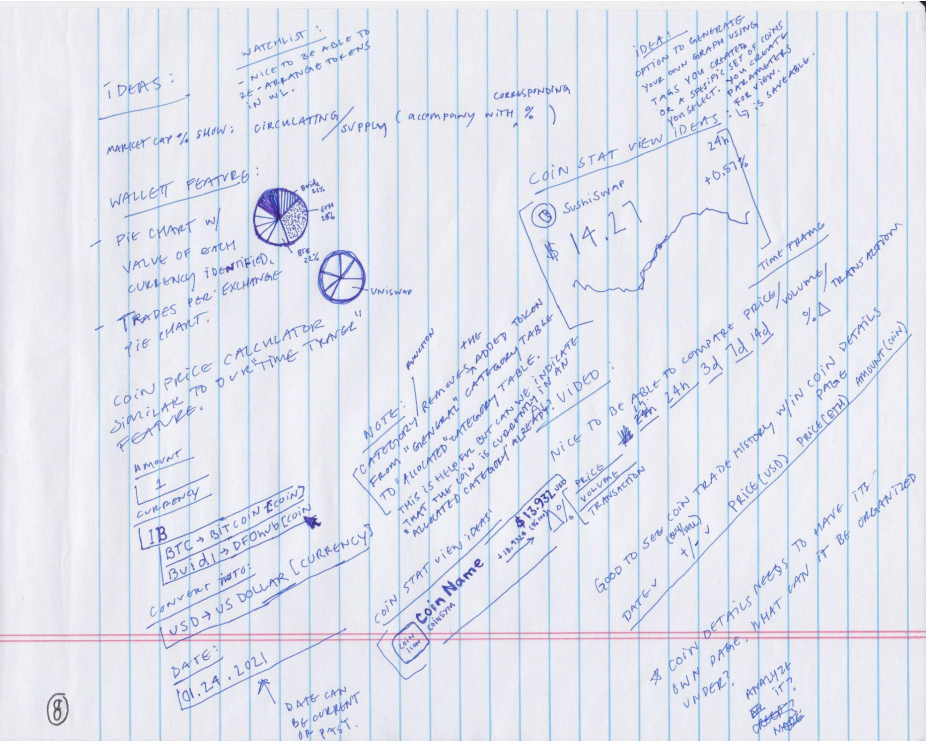 WATCHLIST:
- NICE TO BE ABLE TO
RE-ARRANGE TOKENS
IN WL.
IDEA:
OPTION TO GENERATE
YOUR OWN GRAPH USING
TAGS YOU CREATED
OR A SPECIFIC SET OF COINS
YOU SELECT. YOU CREATE
PARAMETERS
FOR VIEW.
↳ IS SAVEABLE.
IDEAS:
MARKET CAP % SHOW: CIRCULATING/SUPPLY (accompany with %)
CORRESPONDING
WALLETT FEATURE:
- PIE CHART W/
VALUE OF EACH
CURRENCY IDENTIFIED.
- TRADES PER EXCHANGE
PIE CHART.
Buidl
ETH
BTC
22%
UNISWAP
COIN PRICE CALCULATOR
SIMILAR TO OUR "TIME TRAVEL"
FEATURE.
AMOUNT
1
CURRENCY
1B
BTC → BITCOIN [COIN]
Buidl → DFOhub [COIN
CONVERT INTO:
USD → US DOLLAR [CURRENCY]
DATE:
01.24.2021
DATE CAN
BE CURRENT
OR PAST.
COIN STAT VIEW IDEAS:
SUSHISWAP
24h
+0.57%
$ 14.27
NOTE:
FUNCTION
[CATEGORY / REMOVES THE ADDED TOKEN
FROM "GENERAL" CATEGORY TABLE
TO "ALLOCATED" CATEGORY TABLE.
THIS IS HELPFUL BUT CAN WE INDICATE
THAT THE COIN IS CURRENTLY IN AN
ALLOCATED CATEGORY ALREADY.
VIDEO:
NICE TO BE ABLE TO COMPARE PRICE/VOLUME/TRANSACTION
TIME FRAME
24h 3d 7d 14d
% Δ
COIN STAT VIEW IDEAS:
COIN
ICON
Coin Name
COINSYM
$13.932 USD
Δ%
PRICE
VOLUME
TRANSACTION
GOOD TO SEE COIN TRADE HISTORY W/IN COIN DETAILS
PAGE
DATE ˅ +/- ˅ PRICE (USD) PRICE (ETH) AMOUNT (COIN)
* COIN DETAILS NEEDS TO HAVE ITS
OWN PAGE. WHAT CAN IT BE ORGANIZED
UNDER?
ANALYZE
IT?
8